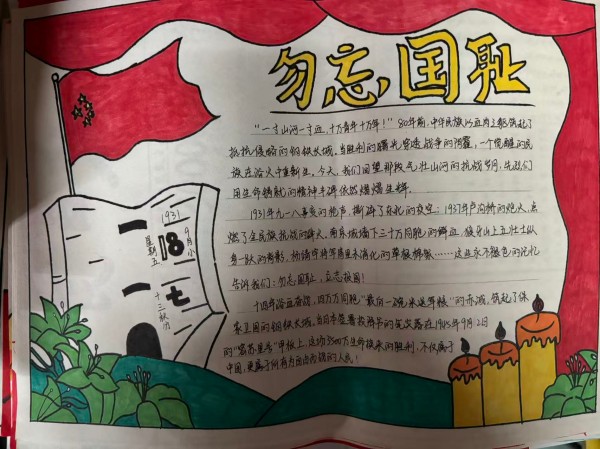 勿忘国耻
"一寸山河一寸血,十万青年十万军!"80年前,中华民族以血肉之躯筑起了
抵抗侵略的钢铁长城。当胜利的曙光穿透战争的阴霾,一个觉醒的民
族在浴火中重新生。今天,我们回望那段气壮山河的抗战岁月,先烈们
用生命铸就的精神丰碑依然熠熠生辉。
1931年九一八事变的枪声,撕碎了东北的夜空;1937年卢沟桥的炮火,点
燃了全民族抗战的烽火。南京城墙下三十万同胞的鲜血,狼牙山上五壮士纵
身一跃的身影,杨靖宇将军胃里未消化的草根棉絮……这些永不褪色的记忆
告诉我们:勿忘国耻,立志报国!
十四年浴血奋战,四万万同胞"最后一碗米送军粮"的赤诚,筑起了保
家卫国的钢铁长城。当日本签署投降书的笔尖落在1945年9月2日
的"密苏里号"甲板上,这场3500万生命换来的胜利,不仅属于
中国,更属于所有为自由而战的人民!
1931
九月小
18
星期五